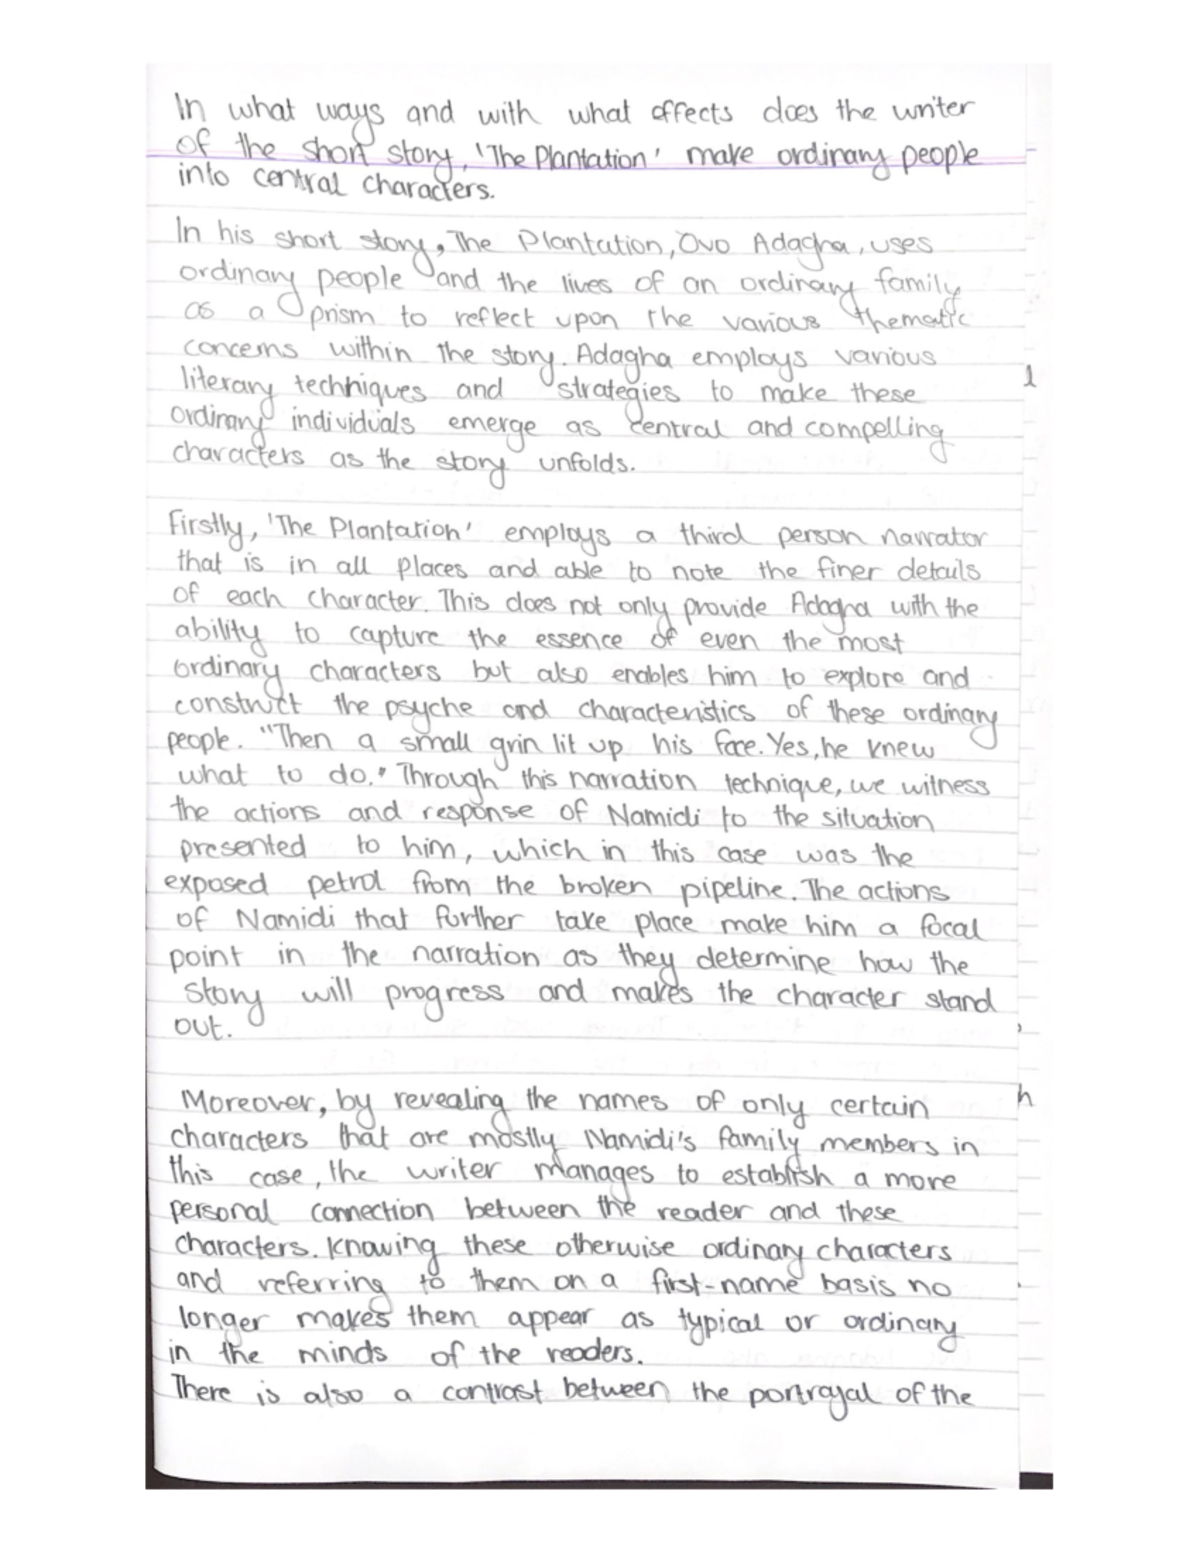 In what ways and with what effects does the writer
of the short story, 'The Plantation' make ordinary people
into central characters.
In his short story, The Plantation, Ovo Adagha, uses
ordinary people and the lives of an ordinary family
as a prism to reflect upon the various thematic
concerns within the story. Adagha employs various
literary techniques and strategies to make these
ordinary individuals emerge as central and compelling
characters as the story unfolds.
Firstly, 'The Plantation' employs a third person narrator
that is in all places and able to note the finer details
of each character. This does not only provide Adagha with the
ability to capture the essence of even the most
ordinary characters but also enables him to explore and
construct the psyche and characteristics of these ordinary
people. "Then a small grin lit up his face. Yes, he knew
what to do." Through this narration technique, we witness
the actions and response of Namidi to the situation
presented to him, which in this case was the
exposed petrol from the broken pipeline. The actions
of Namidi that further take place make him a focal
point in the narration as they determine how the
story will progress and makes the character stand
out.
Moreover, by revealing the names of only certain
characters that are mostly Namidi's family members in
this case, the writer manages to establish a more
personal connection between the reader and these
characters. Knowing these otherwise ordinary characters
and referring to them on a first-name basis no
longer makes them appear as typical or ordinary
in the minds of the readers.
There is also a contrast between the portrayal of the